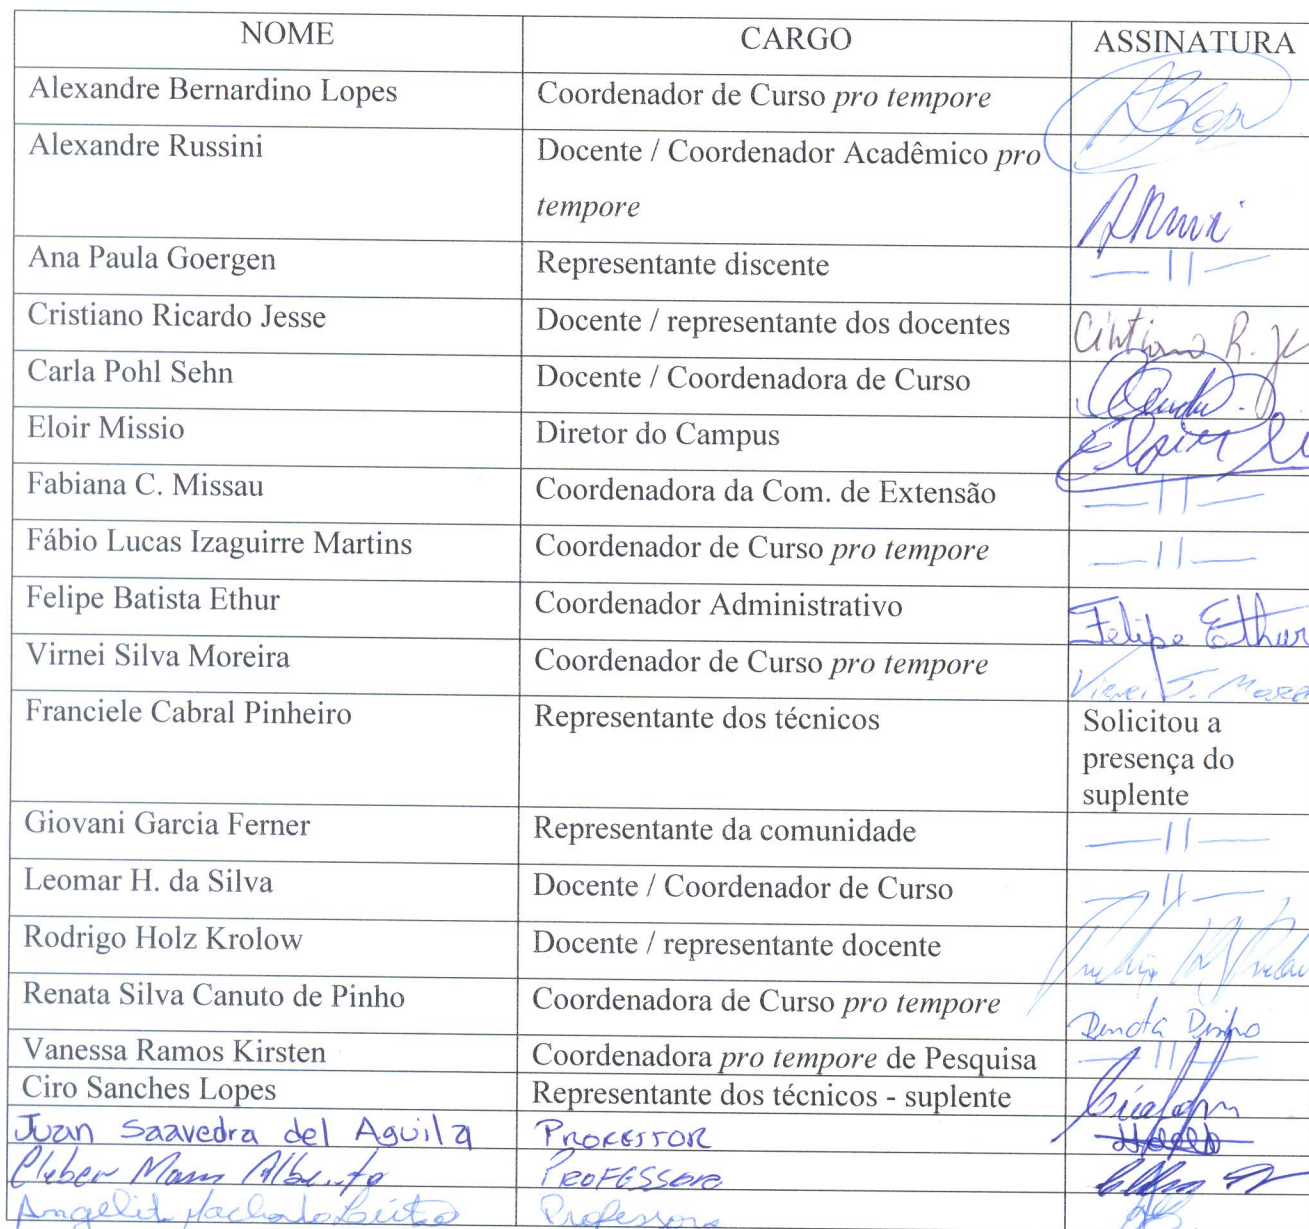 NOME CARGO ASSINATURA
Alexandre Bernardino Lopes Coordenador de Curso pro tempore
Alexandre Russini Docente / Coordenador Acadêmico pro
tempore
Ana Paula Goergen Representante discente —||—
Cristiano Ricardo Jesse Docente / representante dos docentes
Carla Pohl Sehn Docente / Coordenadora de Curso
Eloir Missio Diretor do Campus Eloir
Fabiana C. Missau Coordenadora da Com. de Extensão —||—
Fábio Lucas Izaguirre Martins Coordenador de Curso pro tempore —||—
Felipe Batista Ethur Coordenador Administrativo Felipe Ethur
Virnei Silva Moreira Coordenador de Curso pro tempore Virnei S.
Franciele Cabral Pinheiro Representante dos técnicos Solicitou a
presença do
suplente
Giovani Garcia Ferner Representante da comunidade —||—
Leomar H. da Silva Docente / Coordenador de Curso —||—
Rodrigo Holz Krolow Docente / representante docente
Renata Silva Canuto de Pinho Coordenadora de Curso pro tempore Renata Pinho
Vanessa Ramos Kirsten Coordenadora pro tempore de Pesquisa —||—
Ciro Sanches Lopes Representante dos técnicos - suplente
Juan Saavedra del Aguila PROFESSOR
Cleber PROFESSOR
Angelita Machado Leitão Professora